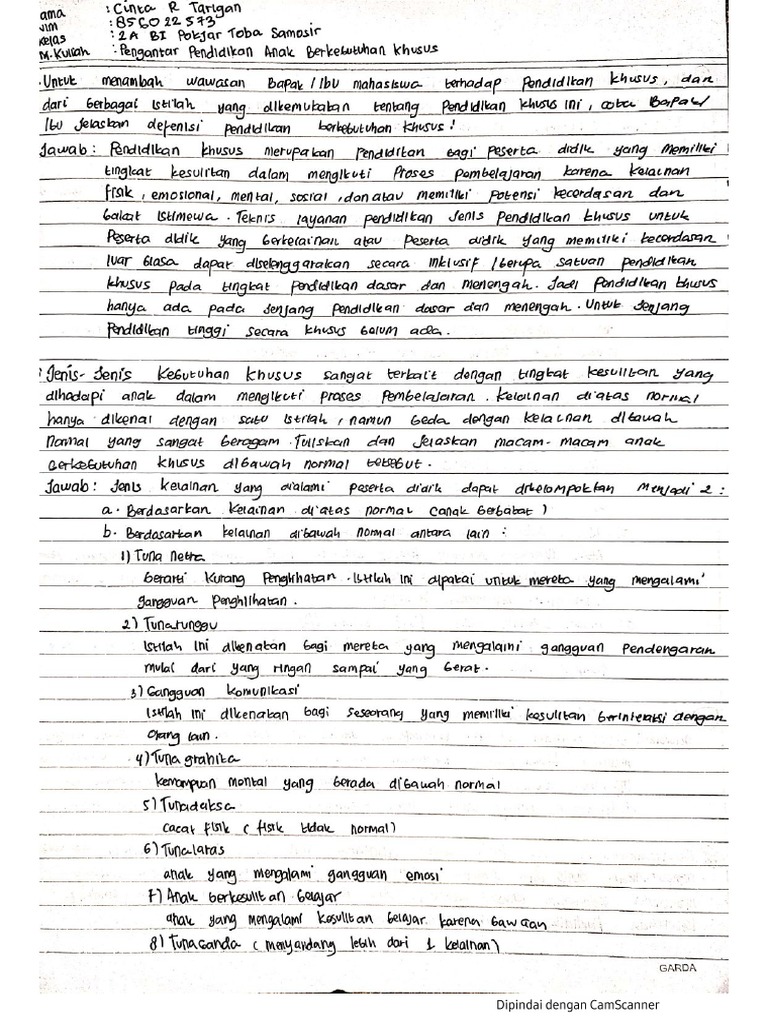 ama : Cinta R Tarigan
NIM : 856022573
Kelas : 2A BI Pokjar Toba Samosir
M. Kuliah : Pengantar Pendidikan Anak Berkebutuhan Khusus
Untuk menambah wawasan Bapak/Ibu mahasiswa terhadap Pendidikan khusus, dan
dari berbagai istilah yang dikemukakan tentang Pendidikan khusus ini, coba Bapak/
Ibu Jelaskan defenisi pendidikan berkebutuhan khusus!
Jawab : Pendidikan khusus merupakan pendidikan bagi peserta didik yang memiliki
tingkat kesulitan dalam mengikuti Proses pembelajaran karena kelainan
fisik, emosional, mental, sosial, dan atau memiliki potensi kecerdasan dan
bakat istimewa. Teknis layanan pendidikan Jenis Pendidikan khusus untuk
Peserta didik yang berkelainan atau peserta didik yang memiliki kecerdasan
luar biasa dapat diselenggarakan secara inklusif / berupa satuan pendidikan
khusus pada tingkat pendidikan dasar dan menengah. Jadi Pendidikan khusus
hanya ada pada Jenjang Pendidikan dasar dan menengah. Untuk Jenjang
Pendidikan tinggi secara khusus belum ada.
Jenis-Jenis Kebutuhan khusus sangat terkait dengan tingkat kesulitan yang
dihadapi anak dalam mengikuti proses Pembelajaran. Kelainan di atas normal
hanya dikenal dengan satu istilah, namun beda dengan kelainan dibawah
normal yang sangat beragam. Tuliskan dan Jelaskan macam-macam anak
berkebutuhan khusus dibawah normal tersebut.
Jawab : Jenis kelainan yang dialami peserta didik dapat dikelompokkan Menjadi 2 :
a. Berdasarkan Kelainan di atas normal (anak berbakat)
b. Berdasarkan kelainan dibawah normal antara lain :
1) Tuna netra
berarti kurang Penglihatan. Istilah ini dipakai untuk mereka yang mengalami
gangguan Penghilhatan.
2) Tunarunggu
Istilah ini dikenakan bagi mereka yang mengalami gangguan Pendengaran
mulai dari yang ringan sampai yang berat.
3) Gangguan Komunikasi
Istilah ini dikenakan bagi seseorang yang memiliki kesulitan berinteraksi dengan
Orang lain.
4) Tuna grahita
Kemampuan mental yang berada dibawah normal
5) Tunadaksa
cacat fisik (fisik tidak normal)
6) Tunalaras
anak yang mengalami gangguan emosi
7) Anak berkesulitan belajar
anak yang mengalami kesulitan belajar karena bawaan
8) Tunaganda (menyandang lebih dari 1 kelainan)
GARDA
Dipindai dengan CamScanner